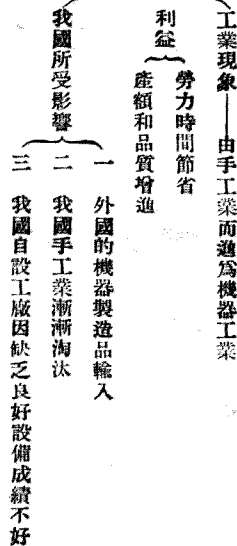 工業現象——由手工業而進爲機器工業
利益
勞力時間節省
產額和品質增進
我國所受影響
一 外國的機器製造品輸入
二 我國手工業漸漸淘汰
三 我國自設工廠因缺乏良好設備成績不好